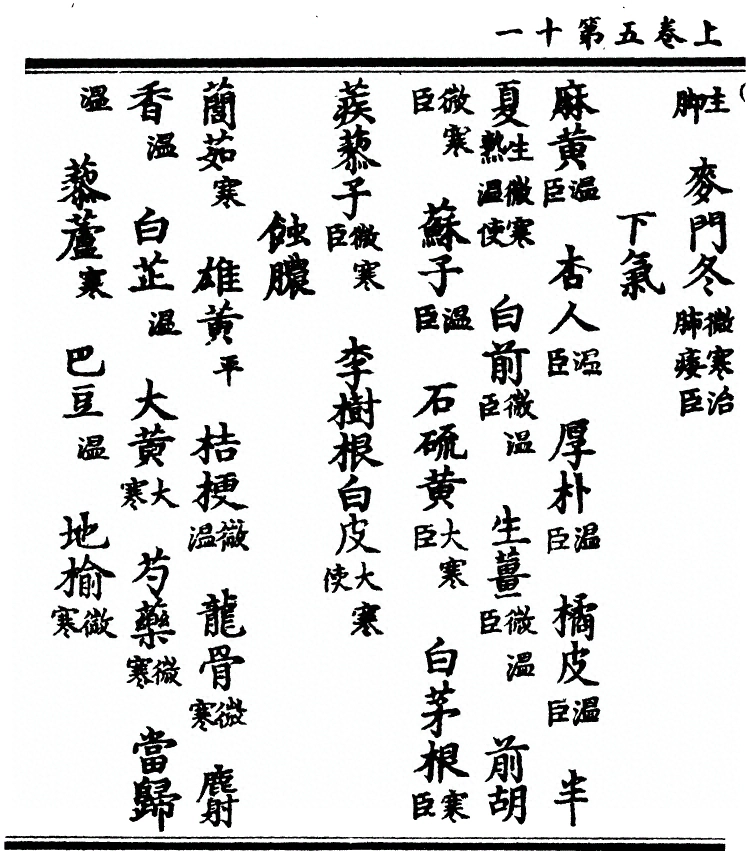 上卷五第十一
主脚 麥門冬 微寒治肺痿臣
下氣
麻黄 溫臣 杏人 溫臣 厚朴 溫臣 橘皮 溫臣 半
夏 生微寒熟溫使 白前 微溫臣 生薑 微溫臣 前胡
微寒臣 蘇子 溫臣 石硫黄 大寒臣 白茅根 寒臣
蒺藜子 微寒臣 李樹根白皮 大寒使
蝕膿
蕳茹 寒 雄黄 平 桔梗 微溫 龍骨 微寒 麝
香 溫 白芷 溫 大黄 大寒 芍藥 微寒 當歸
溫 藜蘆 寒 巴豆 溫 地榆 微寒